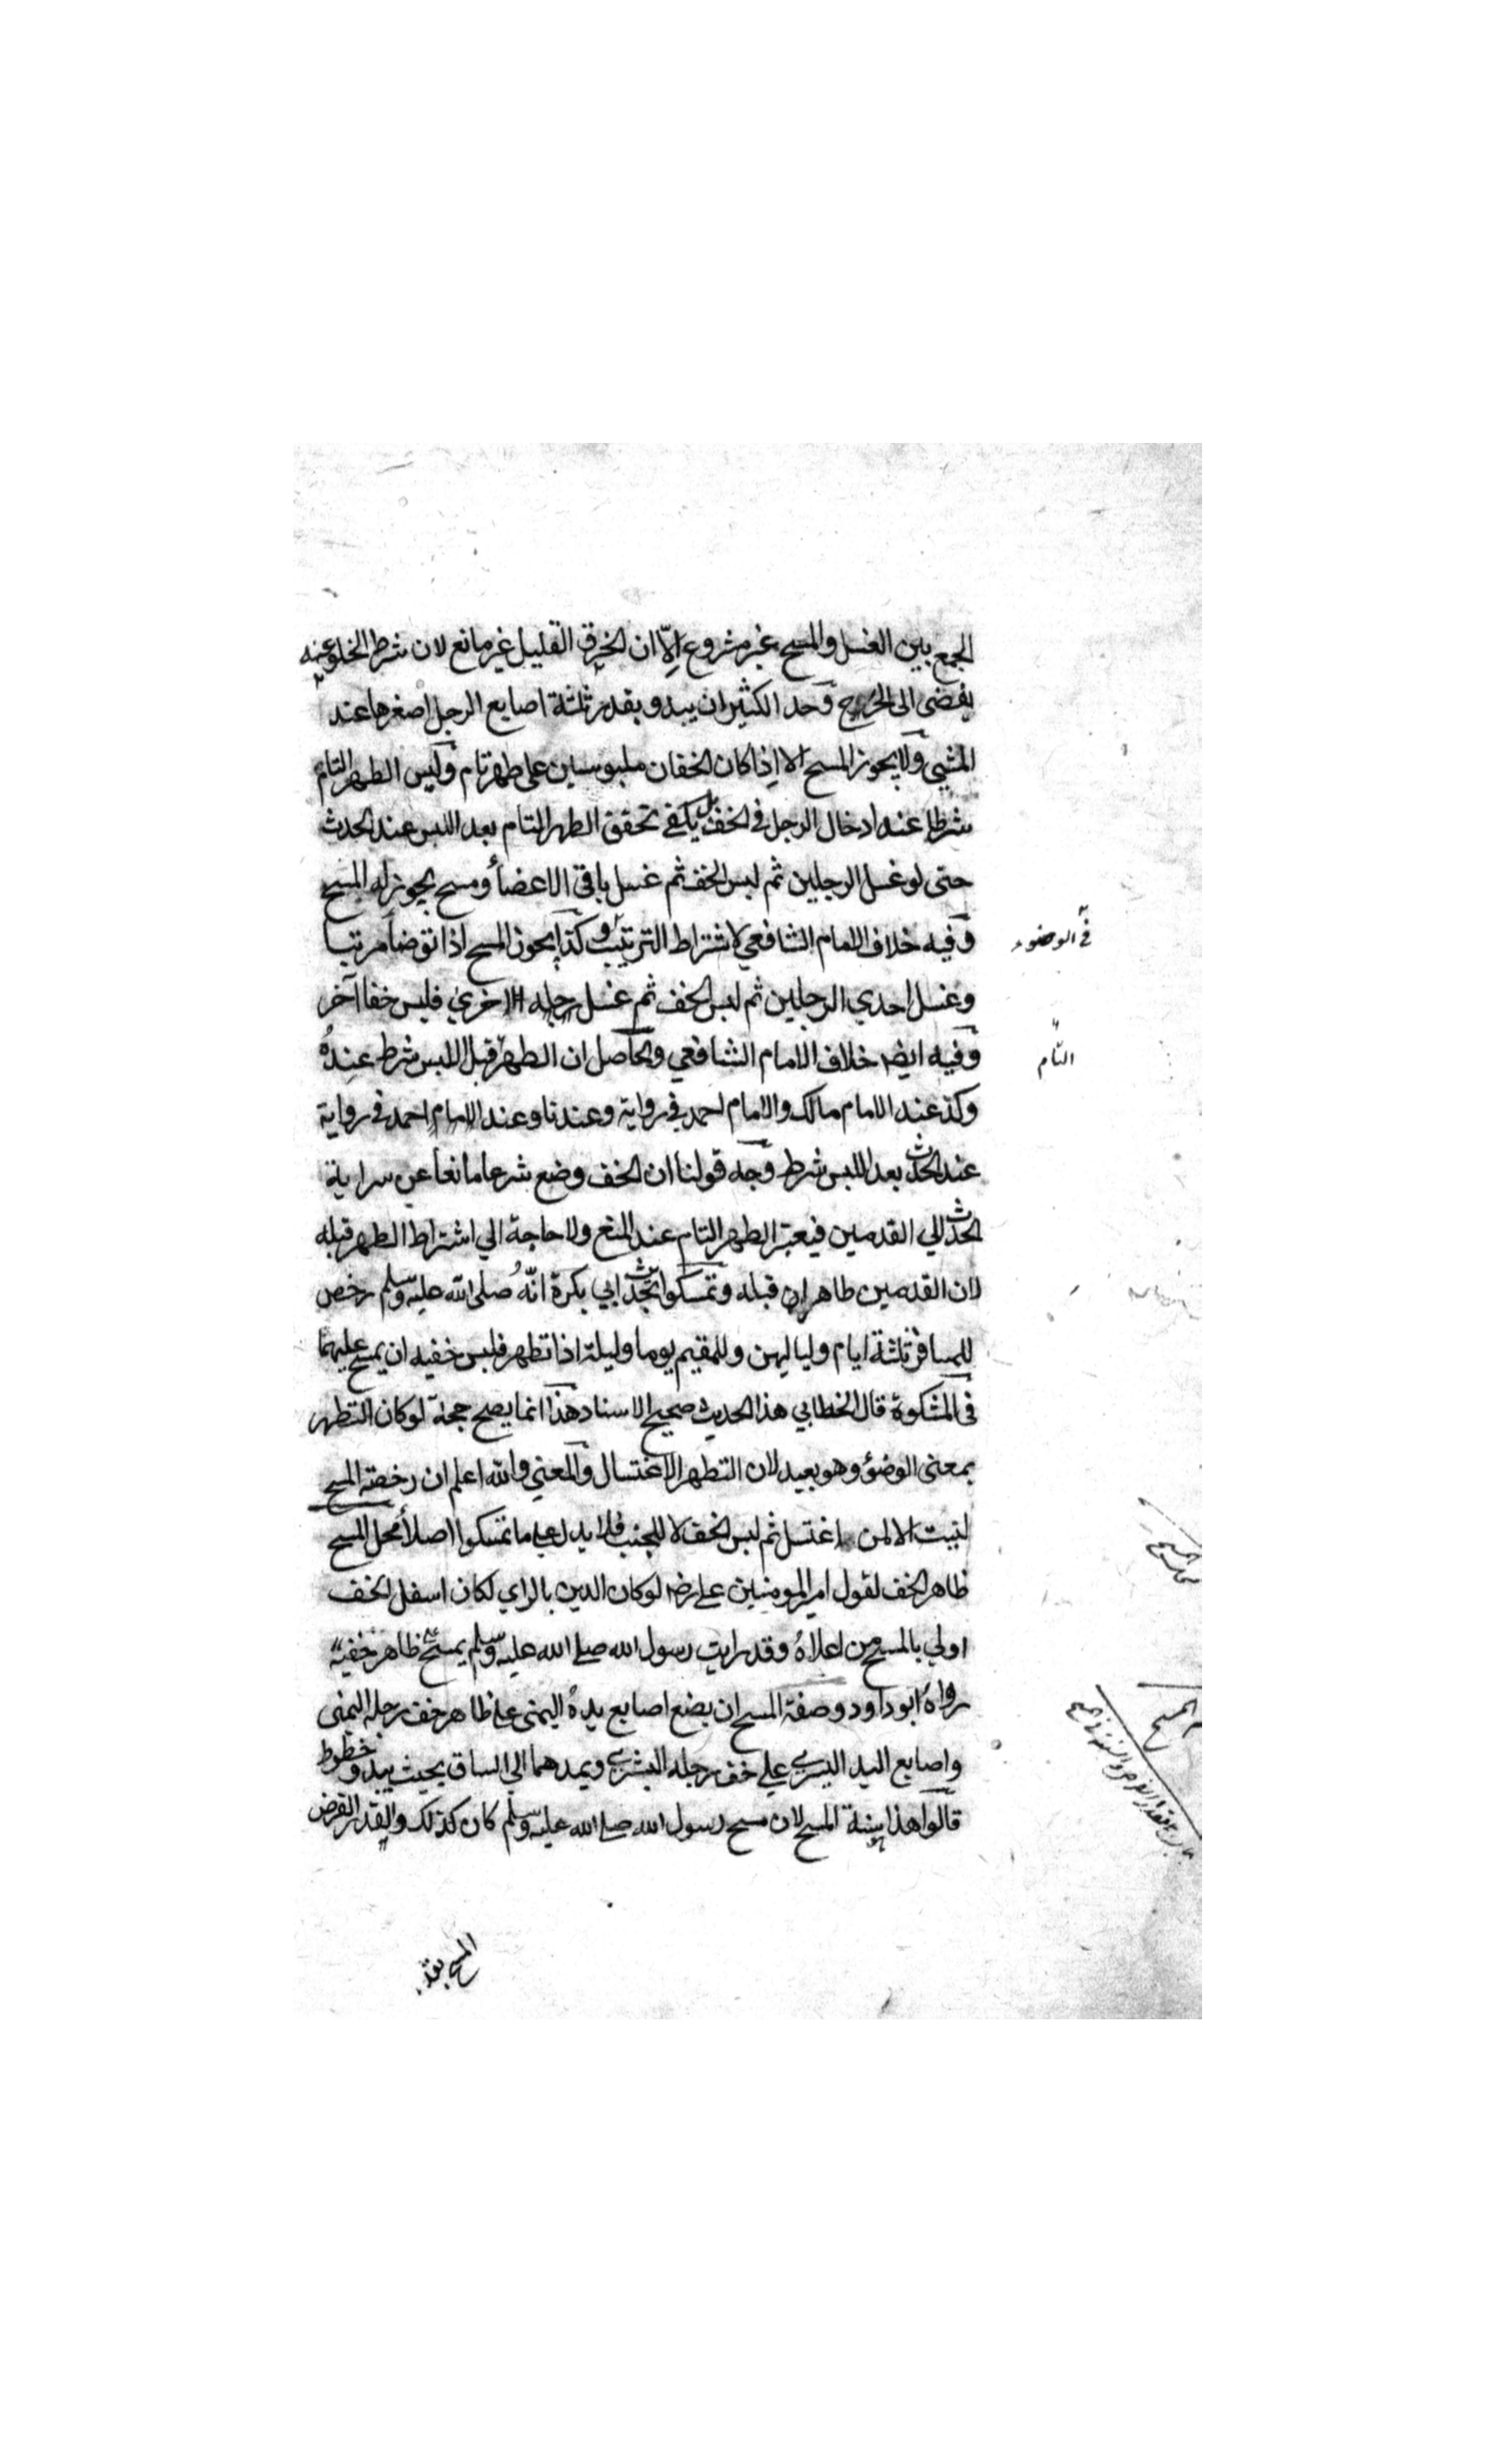 الجمع بين الغسل والمسح غير مشروع إلّا ان الخرق القليل غير مانع لان شرط الخلو عنه
يفضى الى الحرج وحد الكثير ان يبدو بقدر ثلثة اصابع الرجل اصغرها عند
المشي ولا يجوز المسح الا اذا كان الخفان ملبوسين على طهر تام وليس الطهر التام
شرطا عند ادخال الرجل في الخف بل يكفي تحقق الطهر التام بعد اللبس عند الحدث
حتى لو غسل الرجلين ثم لبس الخف ثم غسل باقي الاعضأ ومسح يجوز له المسح
وفيه خلاف الامام الشافعي لاشتراط الترتيب وكذا يجوز المسح اذا توضأ مرتبا
في الوضوء
وغسل احدي الرجلين ثم لبس الخف ثم غسل رجله الاخري فلبس خفا آخر
وفيه ايضا خلاف الامام الشافعي والحاصل ان الطهر قبل اللبس شرط عنده
التام
وكذ عند الامام مالك والامام احمد في رواية وعندنا وعند الامام احمد في رواية
عند الحدث بعد اللبس شرط وجه قولنا ان الخف وضع شرعا مانعا عن سراية
الحدث الي القدمين فيعتبر الطهر التام عند المنع ولا حاجة الي اشتراط الطهر قبله
لان القدمين طاهران قبله وتمسكوا بحديث ابي بكرة انّه صلى الله عليه وسلم رخص
للمسافر ثلثة ايام ولياليهن وللمقيم يوما وليلة اذا تطهر فلبس خفيه ان يمسح عليهما
في المشكوة قال الخطابي هذا الحديث صحيح الاسناد هذا انما يصح حجة لو كان التطهر
بمعنى الوضؤ وهو بعيد لان التطهر الاغتسال والمعني والله اعلم ان رخصة المسح
ليست الا لمن اغتسل ثم لبس الخف لا للجنب فلا يدل على ما تمسكوا اصلأ محل المسح
ظاهر الخف لقول امير المومنين على رضـ لو كان الدين بالراي لكان اسفل الخف
اولي بالمسح من اعلاه وقد رايت رسول الله صلى الله عليه وسلم يمسح ظاهر خفيه
رواه ابو داود وصفة المسح ان يضع اصابع يده اليمنى على ظاهر خف رجله اليمنى
واصابع اليد اليسري على خف رجله اليسري ويمدهما الي الساق بحيث يبدو خطوط
قالوا هذا سنة المسح لان مسح رسول الله صلى الله عليه وسلم كان كذلك والقدر الفرض
المسح بقد